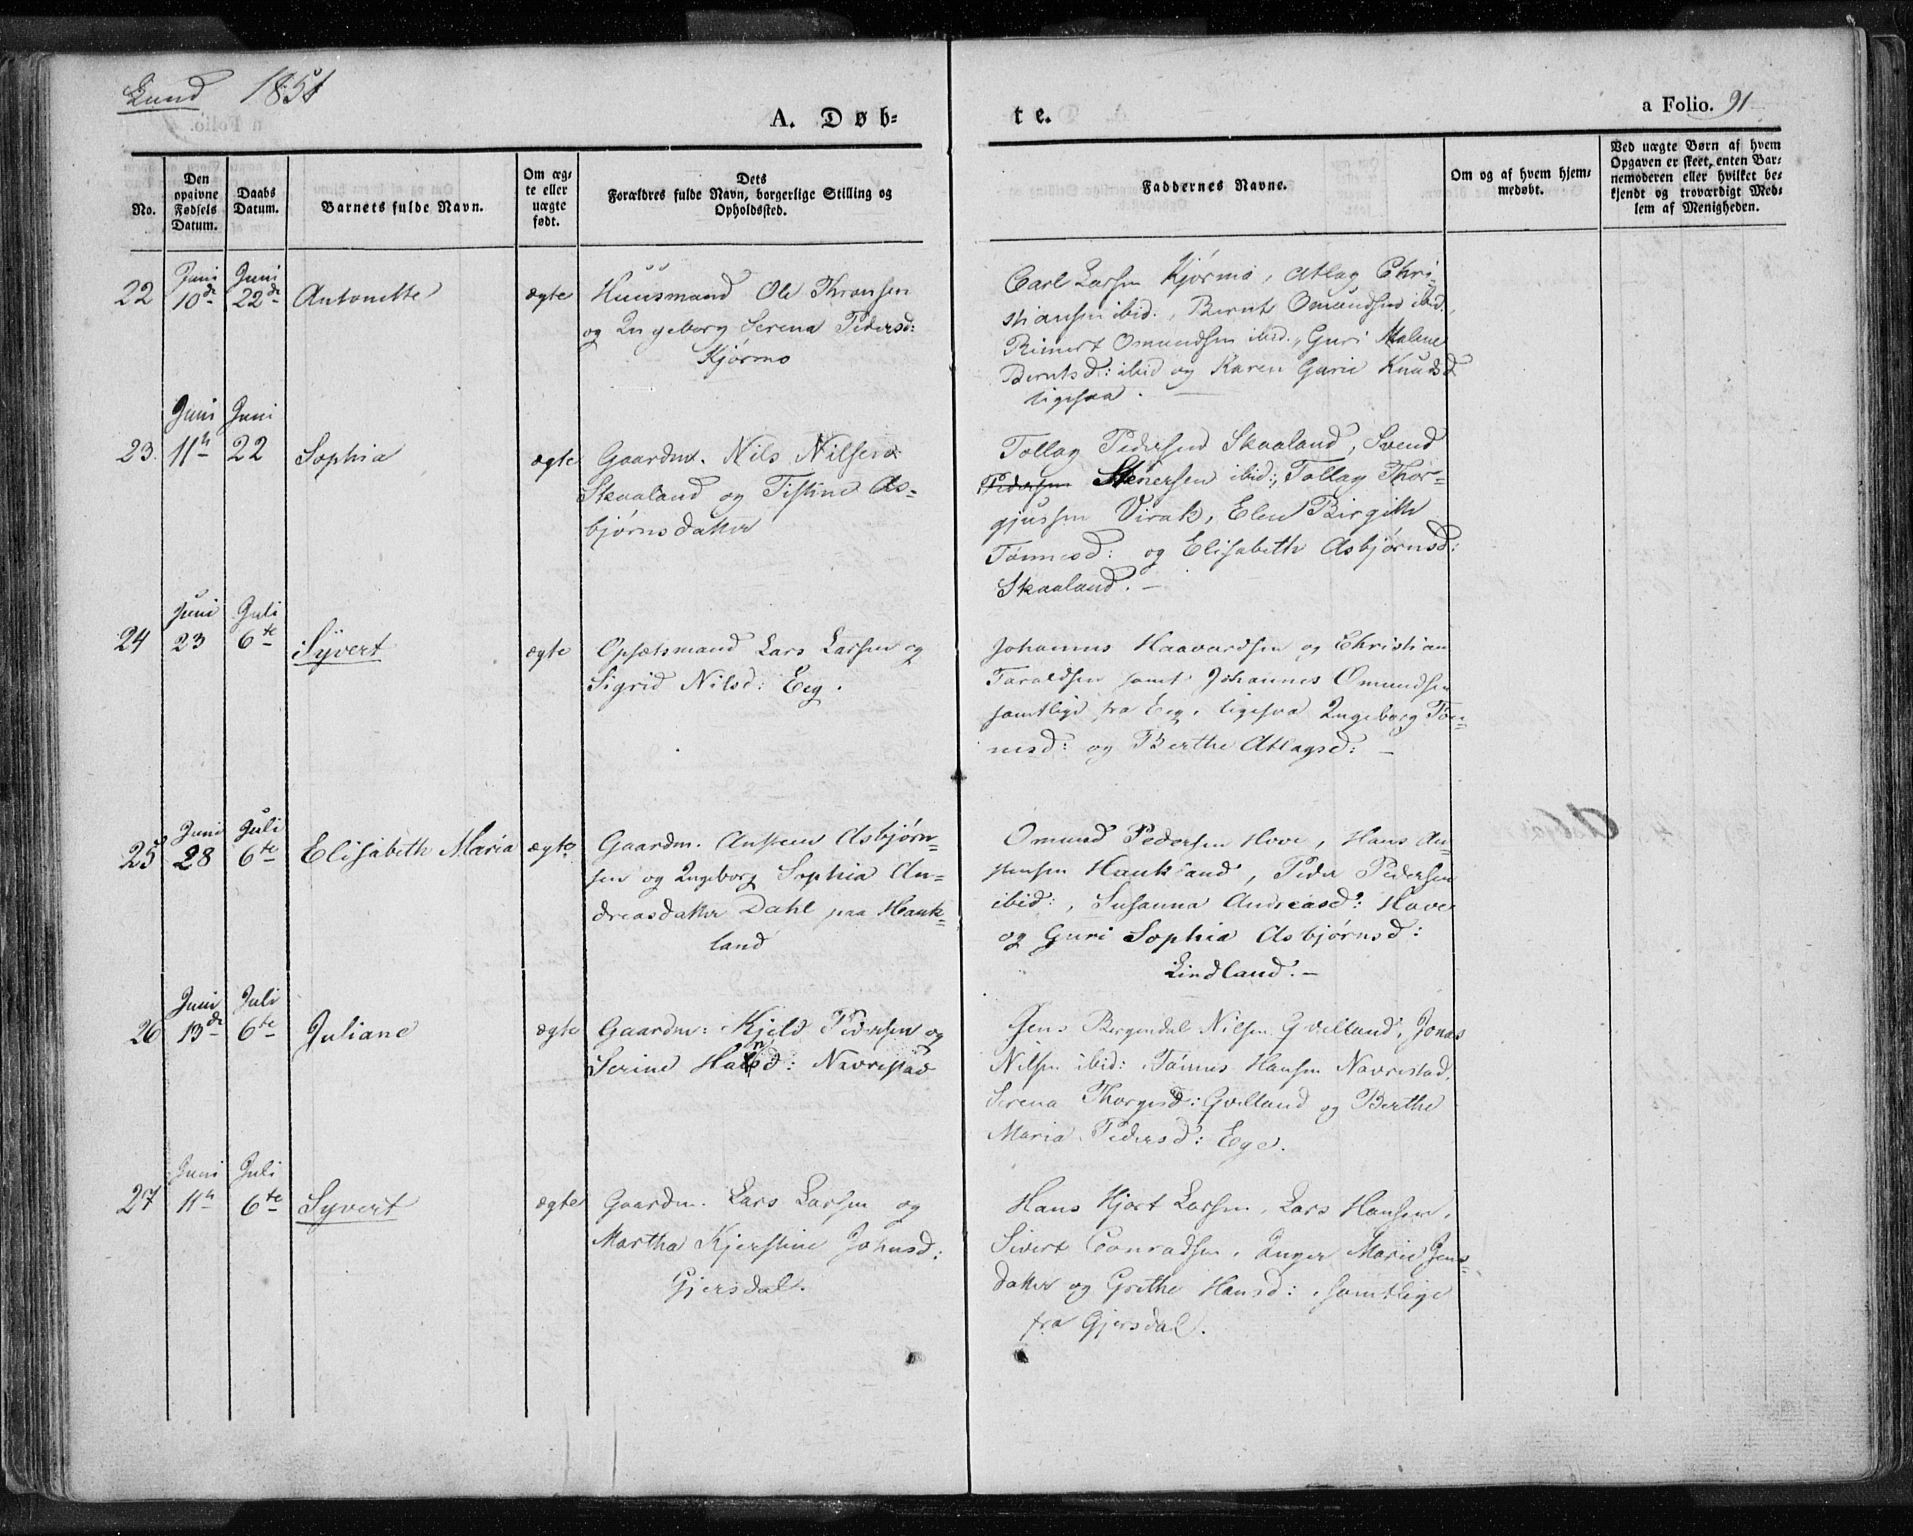 Lund 1851
A. Døb-
te.
a Folio. 91
No.
Den opgivne Fødsels Datum.
Daabs Datum.
Barnets fulde Navn.
Om ægte eller uægte født.
Dets Forældres fulde Navn, borgerlige Stilling og Opholdssted.
Faddernes Navne.
Om og af hvem hjemmedøbt.
Ved uægte Børn af hvem Opgaven er skeet, enten Barnemoderen eller hvilket bekjendt og troværdigt Medlem af Menigheden.
22 Juni 10de Juni 22de Antonette ægte
Huusmand Ole Thronsen
og Ingeborg Serena Pedersd:
Kjørmo
Carl Larsen Kjørmo, Atlag Chri-
stiansen ibid:, Bernt Omundsen ibid.,
Reinert Omundsen ibid., Guri Malene
Berntsd: ibid og Karen Gurie Knudsd
ligesaa.
23. Juni 11te Juni 22 Sophia ægte
Gaardm. Nils Nilsen
Skaaland og Tistine As-
bjørnsdatter
Tollag Pedersen Skaaland, Svend
Pedersen Stenersen ibid:, Tollag Thor-
gjussen Virak, Elen Birgitte
Tønnesd: og Elisabeth Asbjørnsd:
Skaaland. –
24 Juni 23 Juli 6te Syvert ægte
Opsætsmand Lars Larsen og
Sigrid Nilsd: Eeg.
Johannes Haavardsen og Christian
Taraldsen samt Johannes Omundsen
samtlige fra Eeg, ligesaa Ingeborg Tøn-
nesd: og Berthe Atlagsd: –
25 Juni 28 Juli 6te Elisabeth Maria ægte
Gaardm. Austen Asbjørn-
sen og Ingeborg Sophia An-
dreasdatter Dahl paa Hauk-
land
Omund Pedersen Hove, Hans Au-
stensen Haukland, Peder Pedersen
ibid:, Susanna Andreasd: Hove
og Guri Sophia Asbjørnsd:
Lindland. –
26 Juni 13de Juli 6te Juliane ægte
Gaardm: Kjeld Pedersen og
Serine Hansd: Navrestad
Jens Bergendal Nilsen Gvelland, Jonas
Nilsen ibid: Tønnes Hansen Navrestad,
Serena Thorgesd: Gvelland og Berthe
Maria Pedersd: Ege.
27 Juni 11te Juli 6te Syvert ægte
Gaardm. Lars Larsen og
Martha Kjerstine Johnsd:
Gjersdal.
Hans Hjort Larsen, Lars Hansen,
Sivert Conradsen, Inger Marie Jens-
datter og Grethe Hansd:, samtlige
fra Gjersdal.